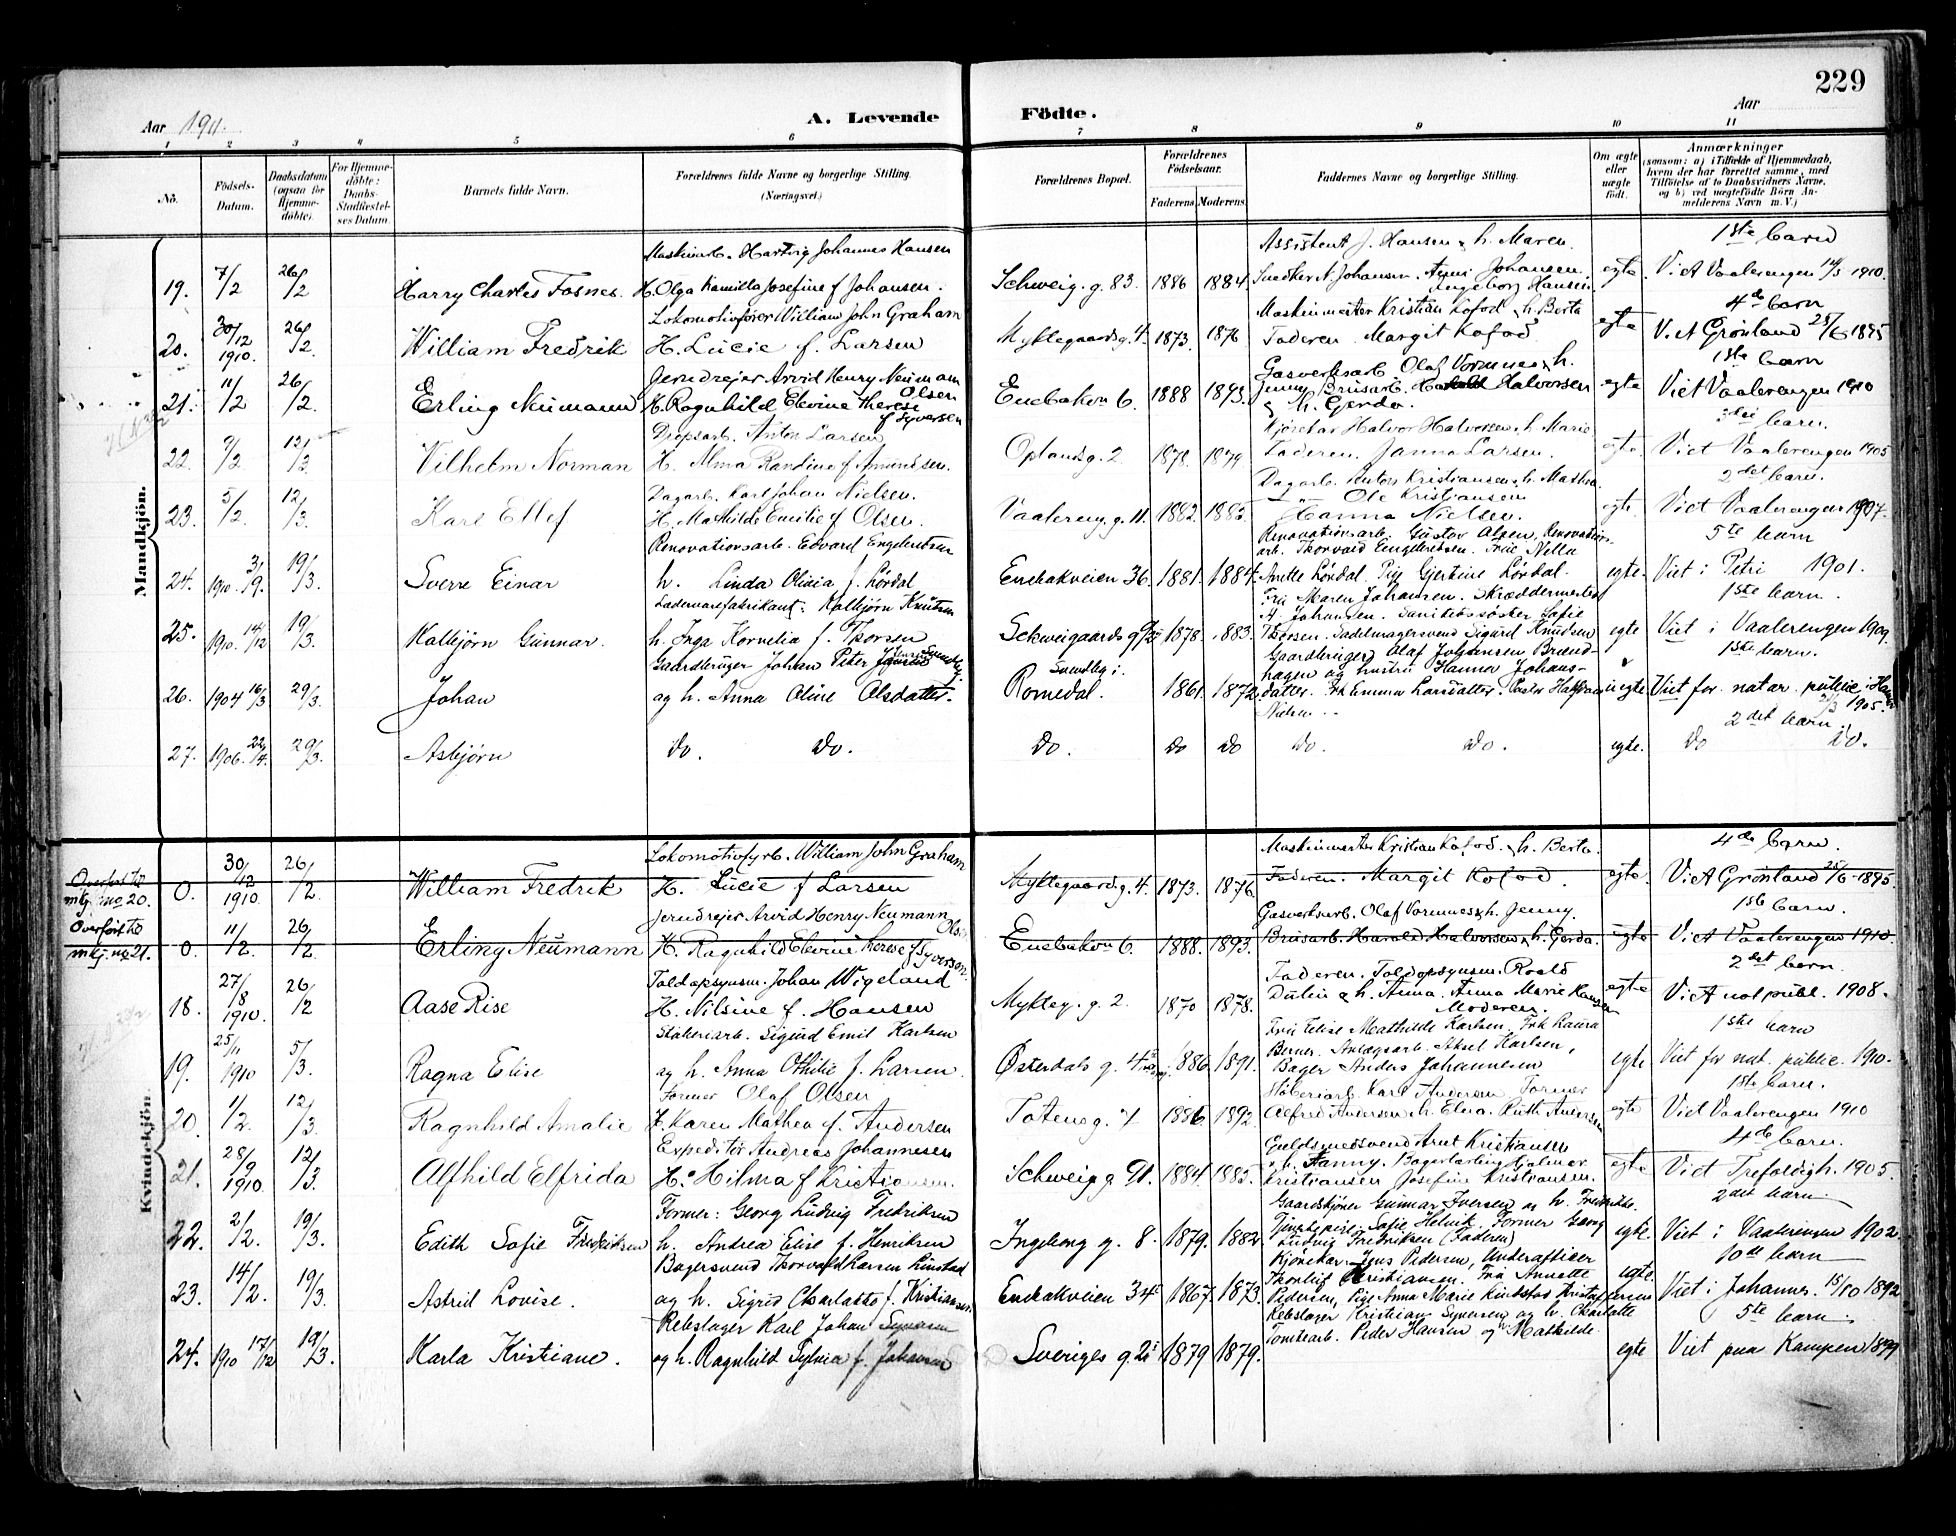 229
Aar 1911.
A. Levende
Födte.
Aar
1 2 3 4 5 6 7 8 9 10 11
No.
Födsels-Datum.
Daabsdatum (ogsaa for Hjemme-döbte).
For Hjemme-döbte: Daabs-Stadfæstel-ses Datum.
Barnets fulde Navn.
Forældrenes fulde Navne og borgerlige Stilling. (Næringsvei.)
Forældrenes Bopæl.
Forældrenes Födselsaar.
Faderens. Moderens.
Faddernes Navne og borgerlige Stilling.
Om ægte eller uægte födt.
Anmærkninger (saasom: a) i Tilfælde af Hjemmedaab, hvem der har forrettet samme, med Tilföielse af to Daabsvidners Navne, og b) ved uægtefödte Börn An-melderens Navn m. V.)
Mandkjön.
Maskinarb. Hartvig Johannes Hansen
Assistent J. Hansen & h. Maren.
1ste barn
19. 7/2 26/2 Harry Charles Fosnes. H. Olga Kamilla Josefine f Johansen. Schweig. g. 83. 1886 1884 Snedker N. Johansen. Agni Johansen. Ingeborg Hansen egte. V. i A Vaalerengen 1910.
Lokomotivfører William John Graham
Maskinmester Kristian Kofod & h. Berta
4de barn
20. 30/12 1910. 26/2. William Fredrik H. Lucie f. Larsen Myklegaardsg. 4. 1873. 1876 Faderen. Margit Kofod egte V. i A Grønland 25/6 1895
Jerndrejer Arvid Henry Neumann Olsen
Gasverksarb Olaf Vormnes & h.
1ste barn
21. 11/2 26/2. Erling Neumann H. Ragnhild Elevine Therese f Syversen Enebakv. 6. 1888 1893. Jenny Brusarb. Halvorsen & h. Gerda. egte Viet Vaalerengen 1910
Dropsarb. Anton Larsen
Kjørekar Halvor Halvorsen & h. Marie
barn.
22. 9/2 12/3. Vilhelm Norman H. Alma Randine f Amundsen. Oplandsg. 2 1878. 1879 Faderen. Janna Larsen. egte. Viet Vaalerengen 1905
Dagarb. Karl Johan Nielsen.
Dagarb. Anton Kristiansen & h. Mathea. Ole Kristiansen
2det barn.
23. 5/2. 12/3. Karl Ellef H. Mathilde Emilie f Olsen. Vaalereng. g. 11. 1882. 1885. Hanna Nielsen. egte. Viet Vaalerengen 1907.
Renovationsarb. Edvard Engebretsen
Renovationsarb. Gustav Olsen, Renovations-arb. Thorvald Engebretsen. Frue Nella
5te barn
24. 1910. 31/9. 19/3. Sverre Einar h. Linda Olivia f. Lørdal Enebakveien 36. 1881. 1884. Anette Lørdal. Pige Gjertine Lørdal. egte. Viet i Petri 1901.
Ladevarefabrikant: Kolbjørn Knutsen
Fru Maren Johansen. Skræddermester A Johansen. Sanitetssøster Sofie
1ste barn.
25. 1910. 14/12 19/3. Kolbjørn Gunnar. h. Inga Kornelia f. Thorsen Schweigaards g. 1878. 1883. Thorsen. Sadelmagersvend Sigurd Knudsen egte Viet i Vaalerengen 1909.
Gaardbruger Johan Peter Jensen Sundby.
Gaardbruger Olaf Johansen Brænd-hagen og hustru Hanna Johans-
1ste barn.
26. 1904 16/3 29/3. Johan og h. Anna Oline Olsdatter. Sundby i Romedal. 1861. 1872. datter. Frk Emma Larsdatter. Peder Nielsen uegte. Viet for notar. public. i Hamar 1905.
2det barn.
27. 1906. 22/4. 29/3. Asbjørn do. do. do. do do do. do. egte. do do.
Kvindekjön.
Lokomotivfyrb. William John Graham
Maskinmester Kristian Kofod. & h. Berta.
4de barn.
Overført til mkj. no 20. 0. 30/12 1910 26/2. William Fredrik H. Lucie f Larsen Myklegaardsg. 4. 1873. 1876. Faderen. Margit Kofod. egte. V. i A Grønland 25/6-1895.
Jerndrejer Arvid Henry Neumann Olsen
Gasverksarb. Olaf Vormnes & h. Jenny.
1ste barn.
Overført til mkj. no 21. 0. 11/2. 26/2. Erling Neumann H. Ragnhild Elevine Therese f Syversen Enebakv. 6. 1888. 1893. Brusarb. Harald Halvorsen & h. Gerda. egte Viet Vaalerengen 1910.
Toldopsynsm. Johan Wigeland
Faderen. Toldopsynsm. Roald
2det barn.
18. 27/8 1910. 26/2 Aase Rise H. Nilsine f. Hansen Mykleg. g. 2. 1870 1878. Dulin & h. Anna. Anna Marie Hansen Moderen. egte V. i A not publ. 1908.
Stakeriarb. Sigurd Emil Karlsen
Fru Elise Mathilde Karlsen. Frk Laura
1ste barn
19. 25/11 1910 5/3. Ragna Elise og h. Anna Othilie f. Larsen. Østerdals g. 4 1886. 1891. Berner. Anlægsarb. Aksel Karlsen, Bager Anders Johannesen egte Viet for not. public. 1910.
Former Olaf Olsen
Støberiarb. Karl Andersen Former
1ste barn.
20. 11/2. 12/3. Ragnhild Amalie H. Karen Mathea f. Andersen Totensg. 4 1886. 1892. Alfred Andersen & h. Elna. Ruth Andersen egte Viet Vaalerengen 1910
Expeditør Andreas Johannesen
Guldsmedsvend Arnt Kristiansen
4de barn.
21. 28/9 1910. 12/3. Alfhild Elfrida H. Hilma f Kristiansen. Schweig g 91. 1884. 1885. & h. Fanny. Bagerlærling Hjalmar Kristiansen Josefine Kristiansen. egte Viet Trefoldigh. 1905.
Former: Georg Ludvig Fredriksen
Gaardskjører Gunnar Iversen og h. Fredrikke.
2det barn.
22. 2/2. 19/3. Edith Sofie Fredriksen h. Andrea Elise f. Henriksen Ingeborg g. 8. 1879. 1882 Tjenstepige Sofie Helvik. Former Georg Ludvig Fredriksen (Faderen) egte. Viet i Vaalerengen 1902.
Bagersvend Thorvald Larsen Linstad
Kjørekar Jens Pedersen, Underoffiser
10de barn
23. 14/2. 19/3. Astrid Lovise. og h. Sigrid Charlotte f. Kristiansen. Enebakveien 34c 1867. 1873. Thorleif Kristiansen. Fru Annette Pedersen, Pige Anna Marie Lindstad Kristoffersen egte. Viet i Johannes. 15/10 1892
Rebslager Karl Johan Syversen
Rebslager Kristian Syversen og h. Charlotte
5te barn.
24. 1910 17/12 19/3. Karla Kristiane. og h. Ragnhild Sylvia f. Johansen Sveriges g. 2 1879 1879. Tomtearb. Peder Hansen og h. Mathilde. egte Viet paa Kampen 1899